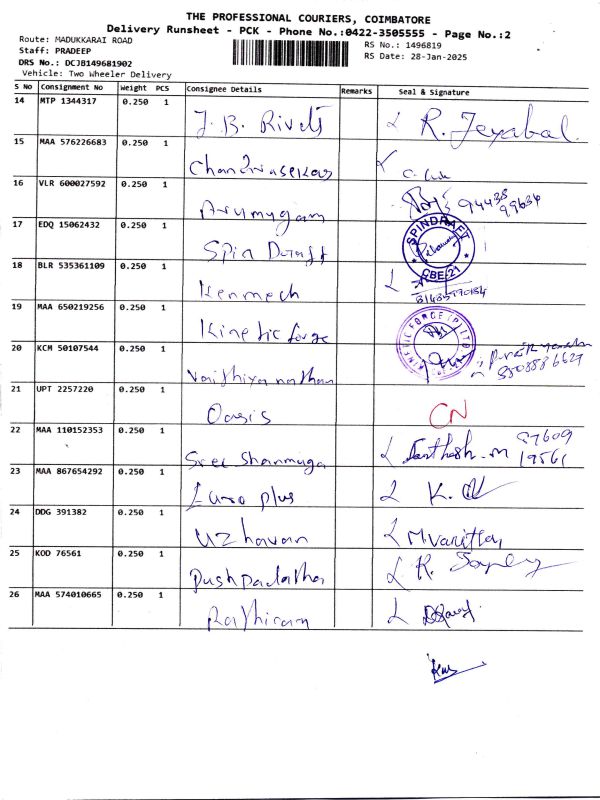 THE PROFESSIONAL COURIERS, COIMBATORE
Delivery Runsheet - PCK - Phone No.:0422-3505555 - Page No.:2
Route: MADUKKARAI ROAD
RS No.: 1496819
Staff: PRADEEP
RS Date: 28-Jan-2025
DRS No.: DCJB149681902
Vehicle: Two Wheeler Delivery
S No Consignment No Weight PCS Consignee Details Remarks Seal & Signature
14 MTP 1344317 0.250 1
J. B. Rivets R. Jeyabal.
15 MAA 576226683 0.250 1
Chandrasekar
16 VLR 600027592 0.250 1
Arumugam 94438 99634
17 EDQ 15062432 0.250 1
Spin Draft SPINDRAFT CBE-21
18 BLR 535361109 0.250 1
Kenmech
19 MAA 650219256 0.250 1
Kinetic forge
20 KCM 50107544 0.250 1
Vaithiyanathan
21 UPT 2257220 0.250 1
Oasis CN
22 MAA 110152353 0.250 1
Sree Shanmuga Santhosh. M 87609 19561
23 MAA 867654292 0.250 1
Euro plus K.
24 DDG 391382 0.250 1
Uzhavan
25 KOD 76561 0.250 1
Pushpalatha R.
26 MAA 574010665 0.250 1